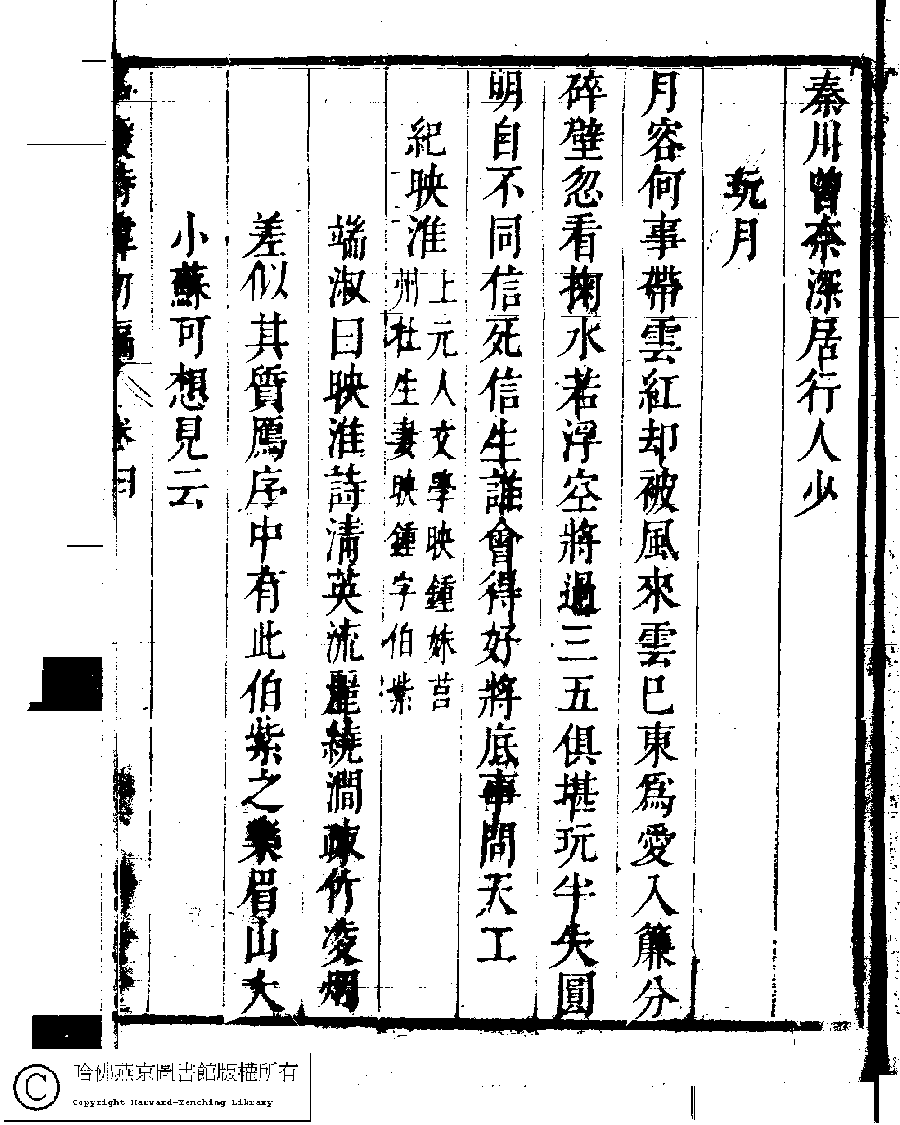 秦川曾奈深居行人少
玩月
月容何事帶雲紅却被風來雲已東爲愛入簾分
碎壁忽看掬水若浮空將過三五俱堪玩半失圓
明自不同信死信生誰會得好將底事問天工
紀映淮
上元人文學映鍾妹莒
州杜生妻映鍾字伯紫
端淑曰映淮詩清英流麗繞澗疎竹凌烟
差似其質鴈序中有此伯紫之樂眉山大
小蘇可想見云
詩 初編
哈佛燕京圖書館版權所有
Copyright Harvard-Yenching Library